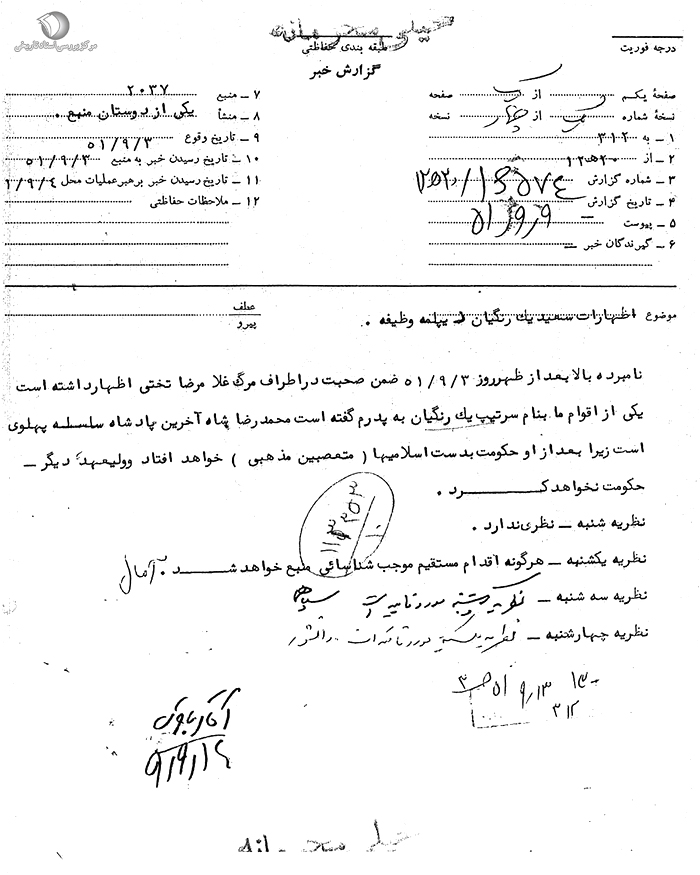 مرکز بررسی اسناد تاریخی
خیلی محرمانه
درجه فوریت
طبقه بندی حفاظتی
گزارش خبر
صفحهٔ یکم یک از یک صفحه
نسخهٔ شماره یک از چهار نسخه
۱ ـ به ۳۱۲
۲ ـ از ۱۲ه۲۰
۳ ـ شماره گزارش
۴ ـ تاریخ گزارش
۵ ـ پیوست
۶ ـ گیرندگان خبر
۷ ـ منبع ۲۰۳۷
۸ ـ منشأ یکی از دوستان منبع .
۹ ـ تاریخ وقوع ۵۱/۹/۳
۱۰ ـ تاریخ رسیدن خبر به منبع ۵۱/۹/۳
۱۱ ـ تاریخ رسیدن خبر برهبرعملیات محل ۱/۹/۴
۱۲ ـ ملاحظات حفاظتی
موضوع اظهارات سعید یك رنگیان دیپلمه وظیفه .
عطف
پیرو
نامبرده بالا بعد از ظهر روز ۵۱/۹/۳ ضمن صحبت در اطراف مرگ غلا مرضا تختی اظهار داشته است
یکی از اقوام ما بنام سرتیپ یك رنگیان به پدرم گفته است محمد رضا شاه آخرین پاد شاه سلسله پهلوی
است زیرا بعد از او حکومت بدست اسلامیها ( متعصبین مذهبی ) خواهد افتاد وولیعهد دیگر ـ
حکومت نخواهد کـــرد .
نظریه شنبه ـ نظری ندارد .
نظریه یکشنبه ـ هرگونه اقدام مستقیم موجب شناسائی منبع خواهد شـــد . آمال
نظریه سه شنبه ـ نظریه یکشنبه مورد تایید است
نظریه چهارشنبه ـ نظریه یکشنبه مورد تائید است
۳۱۲
خیلی محرمانه